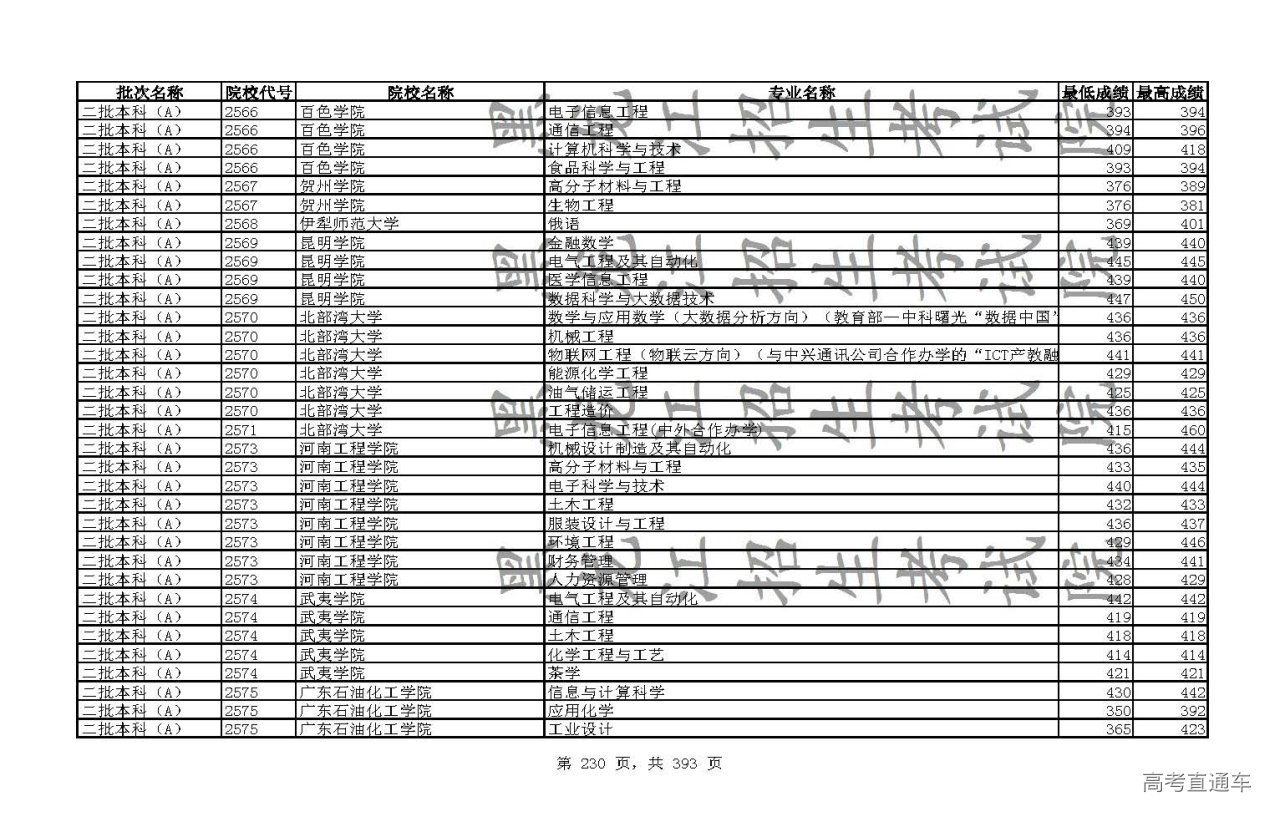 批次名称 院校代号 院校名称 专业名称 最低成绩 最高成绩
二批本科（A） 2566 百色学院 电子信息工程 393 394
二批本科（A） 2566 百色学院 通信工程 394 396
二批本科（A） 2566 百色学院 计算机科学与技术 409 418
二批本科（A） 2566 百色学院 食品科学与工程 393 394
二批本科（A） 2567 贺州学院 高分子材料与工程 376 389
二批本科（A） 2567 贺州学院 生物工程 376 381
二批本科（A） 2568 伊犁师范大学 俄语 369 401
二批本科（A） 2569 昆明学院 金融数学 439 440
二批本科（A） 2569 昆明学院 电气工程及其自动化 445 445
二批本科（A） 2569 昆明学院 医学信息工程 439 440
二批本科（A） 2569 昆明学院 数据科学与大数据技术 447 450
二批本科（A） 2570 北部湾大学 数学与应用数学（大数据分析方向）（教育部—中科曙光“数据中国” 436 436
二批本科（A） 2570 北部湾大学 机械工程 436 436
二批本科（A） 2570 北部湾大学 物联网工程（物联云方向）（与中兴通讯公司合作办学的“ICT产教融 441 441
二批本科（A） 2570 北部湾大学 能源化学工程 429 429
二批本科（A） 2570 北部湾大学 油气储运工程 425 425
二批本科（A） 2570 北部湾大学 工程造价 436 436
二批本科（A） 2571 北部湾大学 电子信息工程(中外合作办学) 415 460
二批本科（A） 2573 河南工程学院 机械设计制造及其自动化 436 444
二批本科（A） 2573 河南工程学院 高分子材料与工程 433 435
二批本科（A） 2573 河南工程学院 电子科学与技术 440 444
二批本科（A） 2573 河南工程学院 土木工程 432 433
二批本科（A） 2573 河南工程学院 服装设计与工程 436 437
二批本科（A） 2573 河南工程学院 环境工程 429 446
二批本科（A） 2573 河南工程学院 财务管理 434 441
二批本科（A） 2573 河南工程学院 人力资源管理 428 429
二批本科（A） 2574 武夷学院 电气工程及其自动化 442 442
二批本科（A） 2574 武夷学院 通信工程 419 419
二批本科（A） 2574 武夷学院 土木工程 418 418
二批本科（A） 2574 武夷学院 化学工程与工艺 414 414
二批本科（A） 2574 武夷学院 茶学 421 421
二批本科（A） 2575 广东石油化工学院 信息与计算科学 430 442
二批本科（A） 2575 广东石油化工学院 应用化学 350 392
二批本科（A） 2575 广东石油化工学院 工业设计 365 423
黑龙江招生考试院
黑龙江招生考试院
黑龙江招生考试院
黑龙江招生考试院
第 230 页，共 393 页
高考直通车